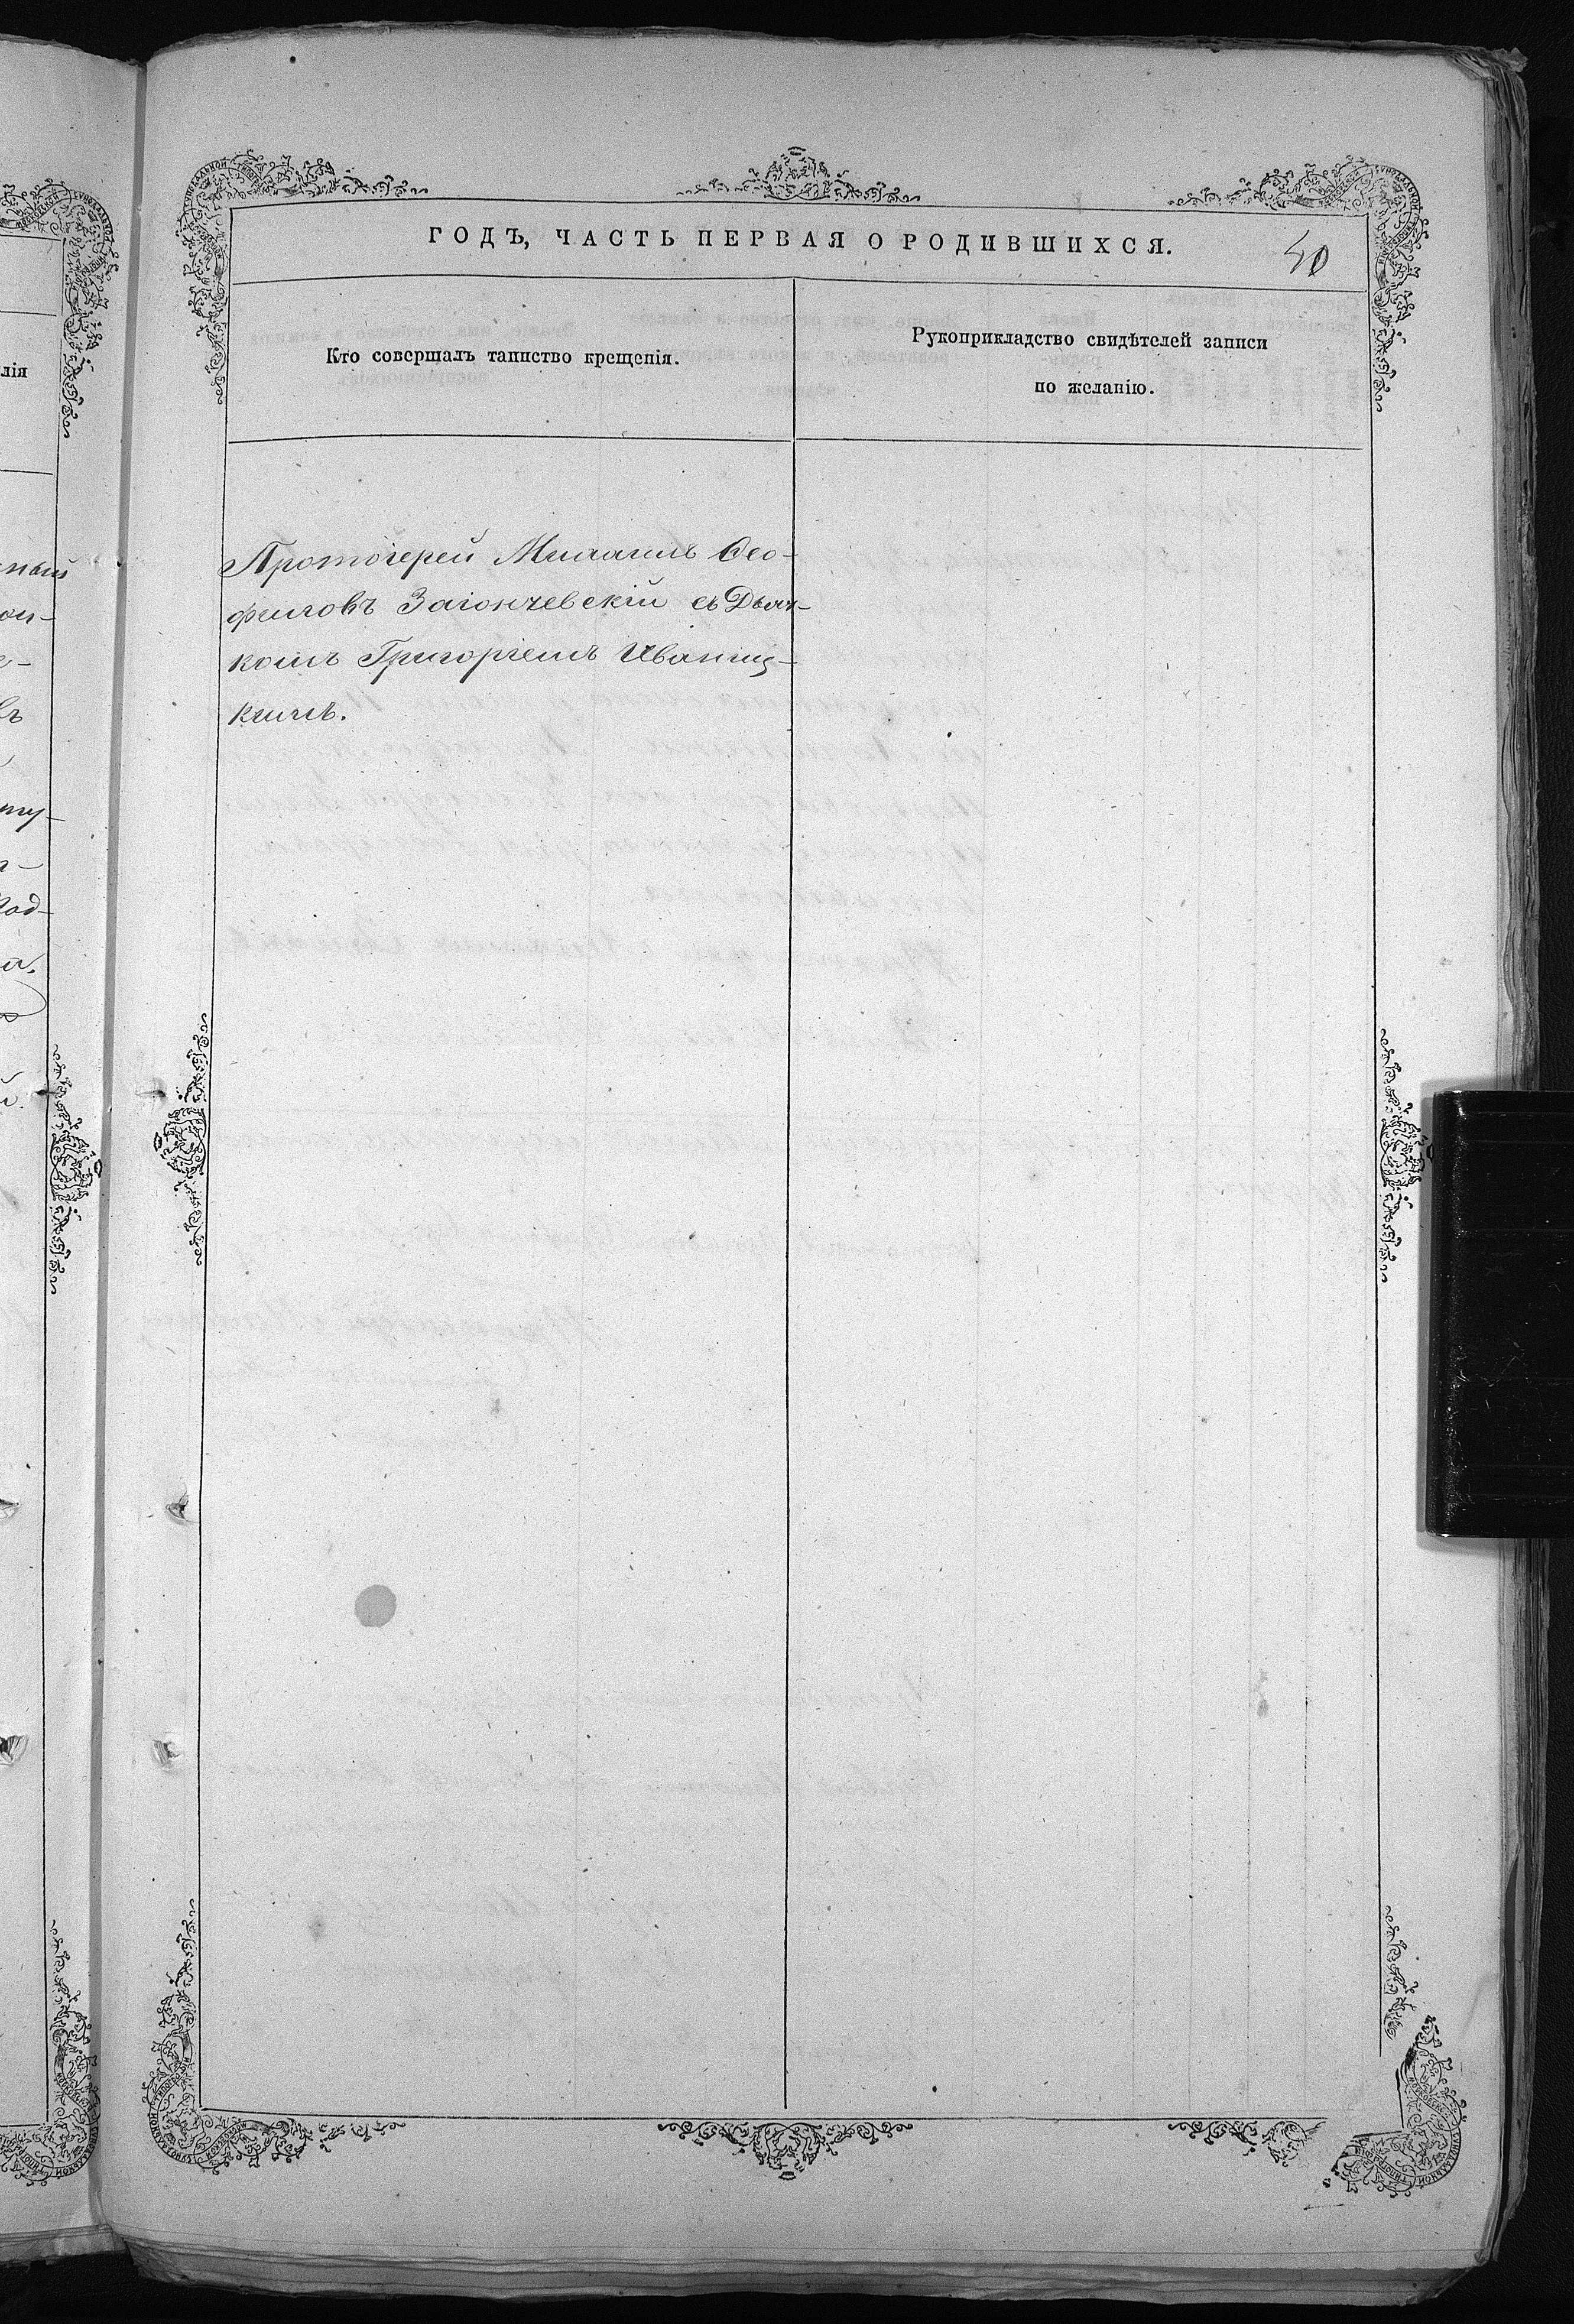 ГОДЪ, ЧАСТЬ ПЕРВАЯ О РОДИВШИХСЯ.
40
Кто совершалъ таинство крещенія.
Рукоприкладство свидѣтелей записи
по желанію.
лія
Протоіерей Михаилъ Ѳео-
филовъ Загончевскій съ Дьяч-
комъ Григоріемъ Иваниц-
кимъ.